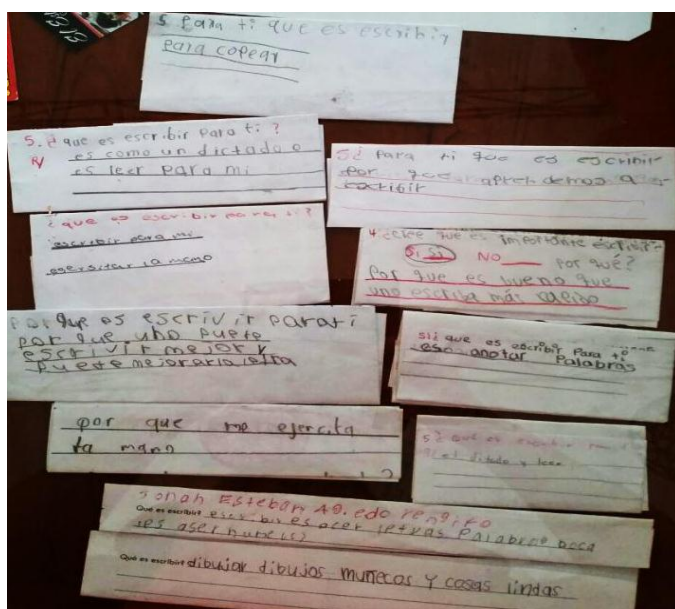 5 Para ti que es escribir
para copear
5. ¿que es escribir para ti?
R/ es como un dictado o
es leer para mi
5¿ Para ti que es escribir
por que aprendemos a
escribir
¿que es escribir para ti?
escribir para mi
egersitar la mano
4 ¿cree que es importante escribir
Si Si NO por qué?
Por que es bueno que
uno escriba más
Por que es escrivir para ti
por que uno puete
escrivir mejor y
puete mejorar la letra
5¿ que es escribir para ti
eso anotar palabras
por que me ejercita
la mano
5¿ que es escribir para
el ditado y leer
Esteban
Que es escribir escribir es aser letras palabras
es aser
Que es escribir dibujar dibujos muñecos y cosas lindas